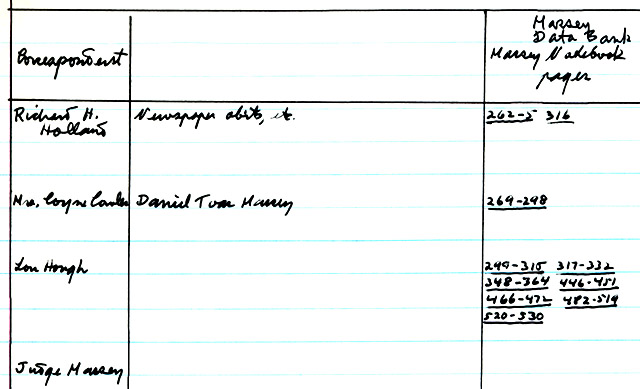 Massey
Data Bank
Correspondent Massey Notebook
pages
Richard H. Newspaper obits, etc. 262-5 316
Holland
Mrs. Coyne Daniel Massey 269-298
Lou Hough 299-315 317-332
348-364 446-451
466-472 482-519
520-530
Judge Massey